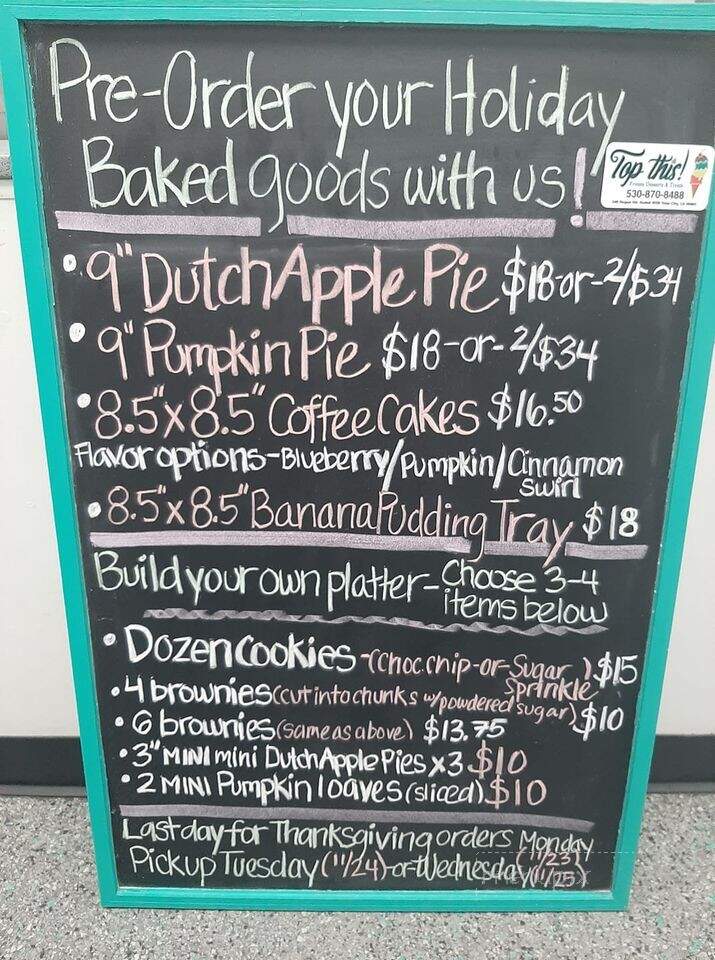 Pre-Order your Holiday
Baked goods with us!
Top this!
Frozen Desserts & Treats
530-870-8488
• 9" Dutch Apple Pie $18-or-2/$34
• 9" Pumpkin Pie $18-or-2/$34
• 8.5"x8.5" Coffee Cakes $16.50
Flavor options-Blueberry/Pumpkin/Cinnamon
swirl
• 8.5"x8.5" Banana Pudding Tray $18
Build your own platter- Choose 3-4
items below
• Dozen Cookies -(choc.chip-or-Sugar ) $15
Sprinkle
• 4 brownies (cut into chunks w/powdered sugar) $10
• 6 brownies (same as above) $13.75
• 3" MINI mini Dutch Apple Pies x3 $10
• 2 MINI Pumpkin loaves (sliced) $10
Last day for Thanksgiving orders Monday
(11/23)
Pickup Tuesday (11/24)-or-Wednesday (11/25)